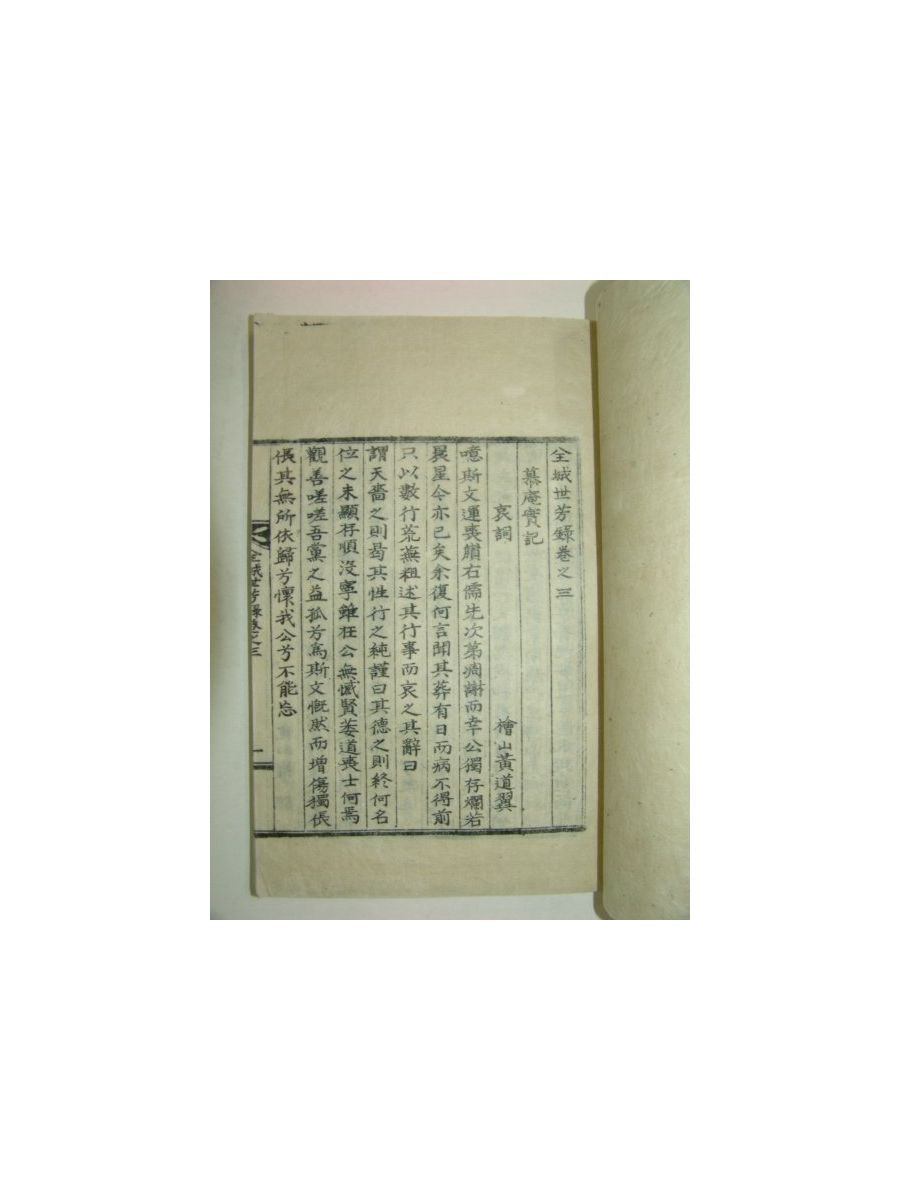 全城世芳錄卷之三
慕庵實記
哀詞 檜山黃道翼
噫斯文運喪嶺右儒先次第凋謝而幸公獨存爛若
晨星今亦已矣余復何言聞其葬有日而病不得前
只以數行荒蕪粗述其行事而哀之其辭曰
謂天嗇之則曷其性行之純謹曰其德之則終何名
位之未顯存順沒寧雖在公無憾賢萎道喪士何焉
觀善嗟嗟吾黨之益孤兮爲斯文慨然而增傷獨倀
倀其無所依歸兮懷我公兮不能忘
全城世芳錄卷之三 一